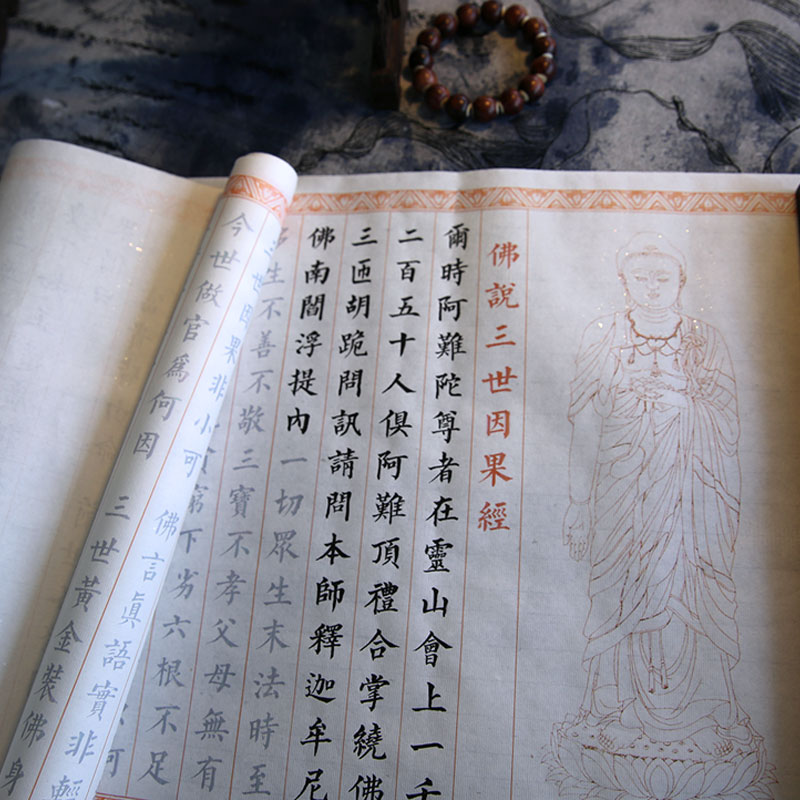 佛說三世因果經
爾時阿難陀尊者在靈山會上一千
二百五十人俱阿難頂禮合掌繞佛
三匝胡跪問訊請問本師釋迦牟尼
佛南閻浮提內一切眾生末法時至
生不善不敬三寶不孝父母無有
窮下劣六根不足
三世因果非小可 佛言真語實非輕
今世做官為何因 三世黃金裝佛身